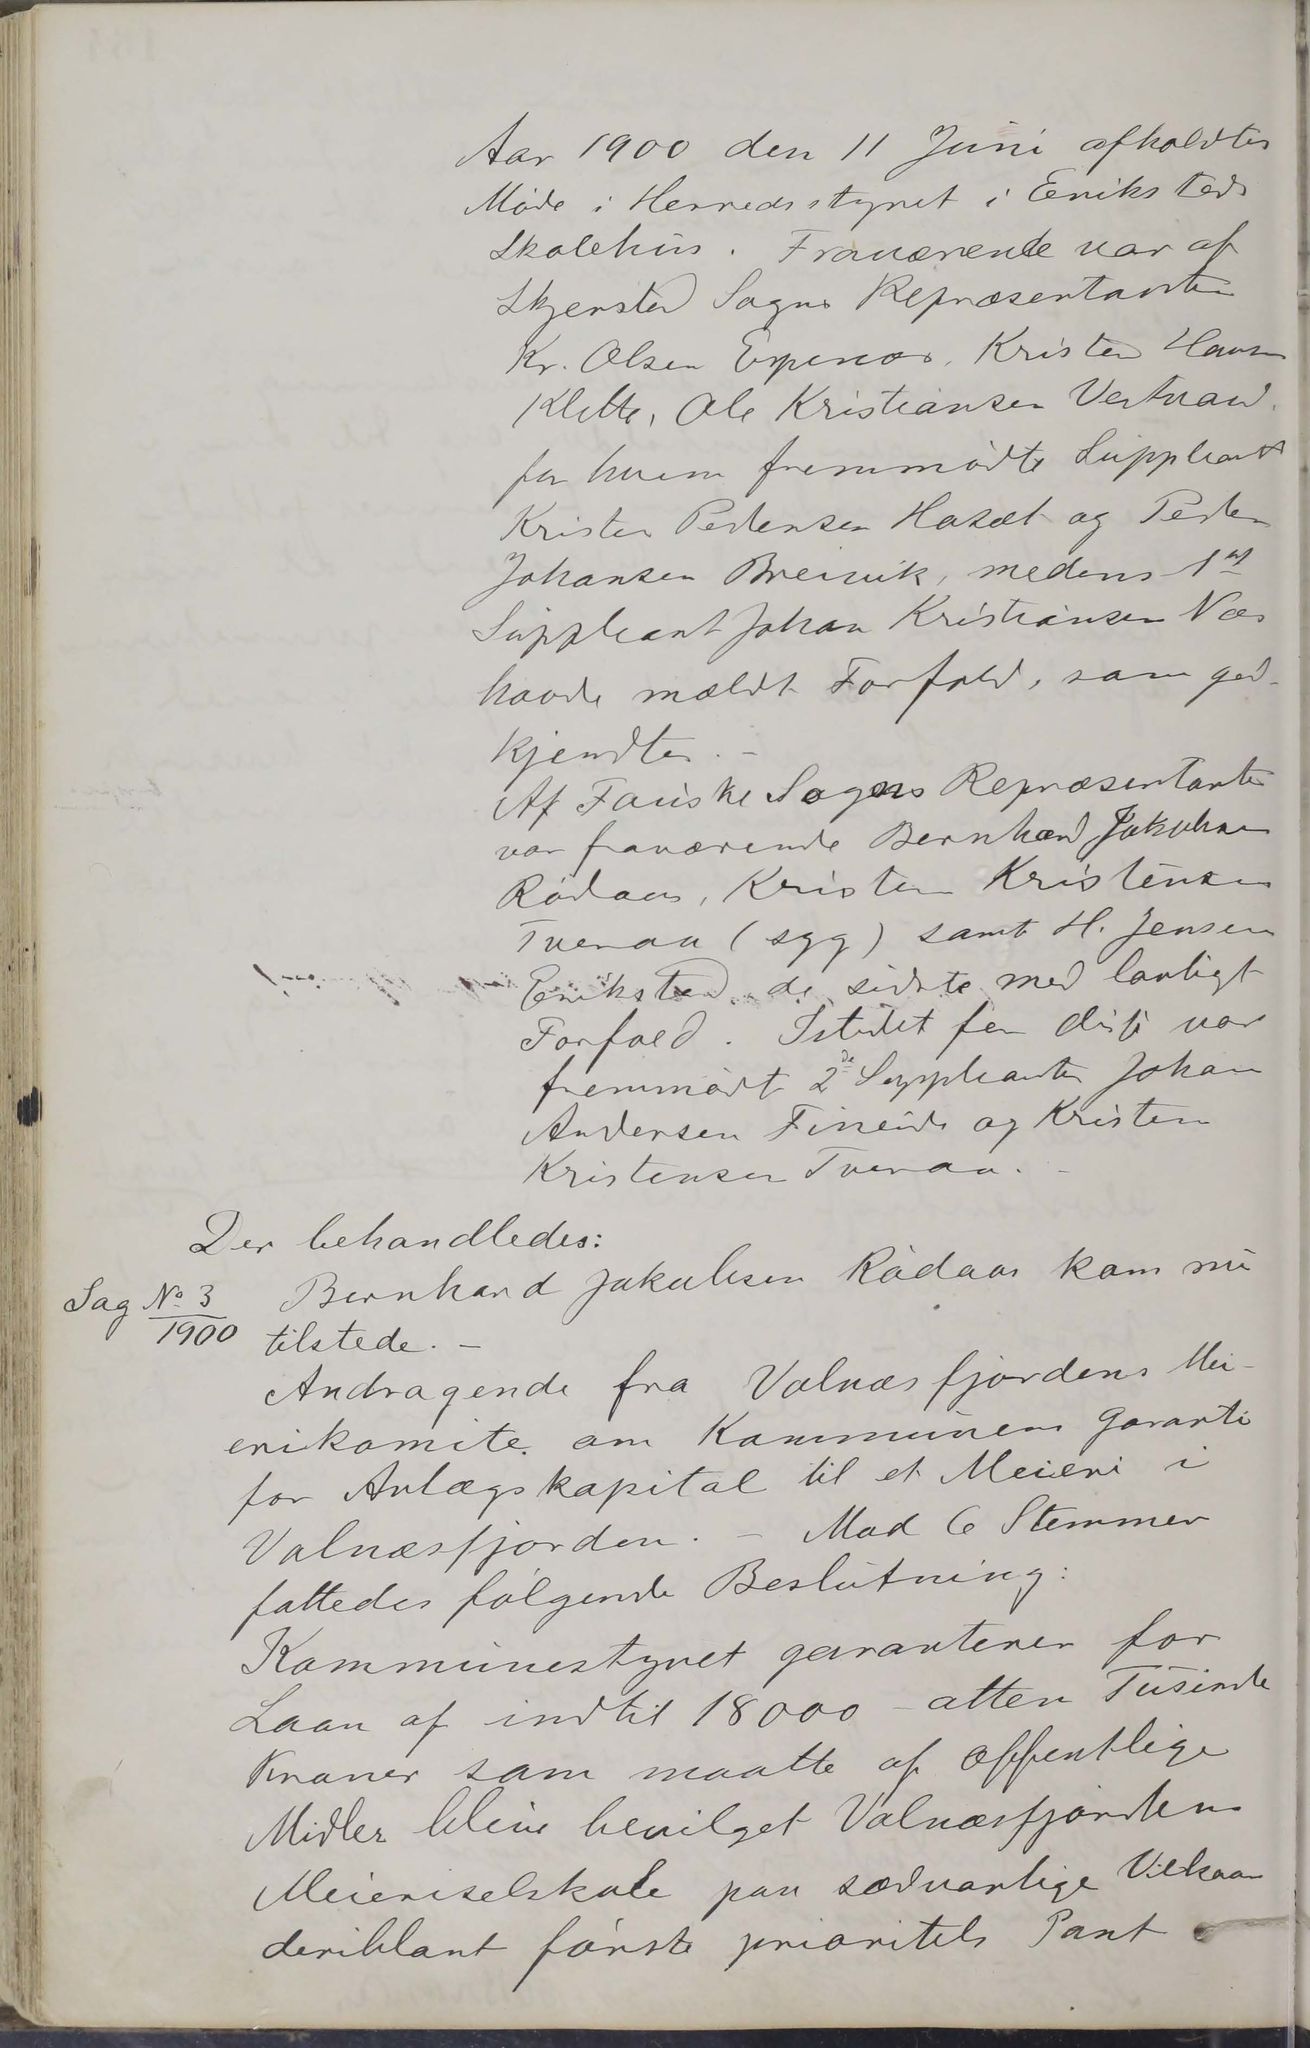 Aar 1900 den 11 Juni afholdtes
Møde i Herredsstyret i Eriksteds
Skolehus. Fraværende var af
Skjersted Sogns Repræsentanter
Kr. Olsen Evjenes, Kristen Hansen
Klette, Ole Kristiansen Vestvand
for hvem fremmødte Suppleant
Kristen Pedersen Hosæt og Peder
Johansen Breivik, medens 1st
Suppleant Johan Kristiansen Næs
havde mældt Forfald, som god-
kjendtes. -
Af Fauske Sogns Repræsentanter
var fraværende Bernhard Jakobsen
Rødaas, Kristen Kristensen
Tveraa (syg) samt H. Jensen
Erikstad de sidste med lovligt
Forfald. Istedet for disse var
fremmødt 2de Suppleanter Johan
Andersen Fineide og Kristen
Kristensen Tveraa. -
Der behandledes:
Sag No 3 Bernhard Jakobsen Rødaas kom nu
1900 tilstede. -
Andragende fra Valnæsfjordens Mei-
erikomite om Kommunens Garanti
for Anlægskapital til et Meieri i
Valnæsfjorden. - Mod 6 Stemmer
fattedes følgende Beslutning:
Kommunestyret garanterer for
Laan af indtil 18000 - atten Tusinde
Kroner som maatte af offentlige
Midler blive bevilget Valnæsfjordens
Meieriselskab paa sædvanlige Vilkaar
deriblant første prioritets Pant